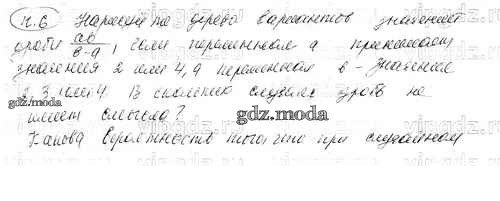 п.6 Нарисуйте дерево вариантов значений
дроби ab/b-a, если переменная a принимает
значения 2 или 4, а переменная b - значения
2, 3 или 4. В скольких случаях дробь не
gdz.moda
имеет смысла?
gdz.moda
Какова вероятность того, что при случайном